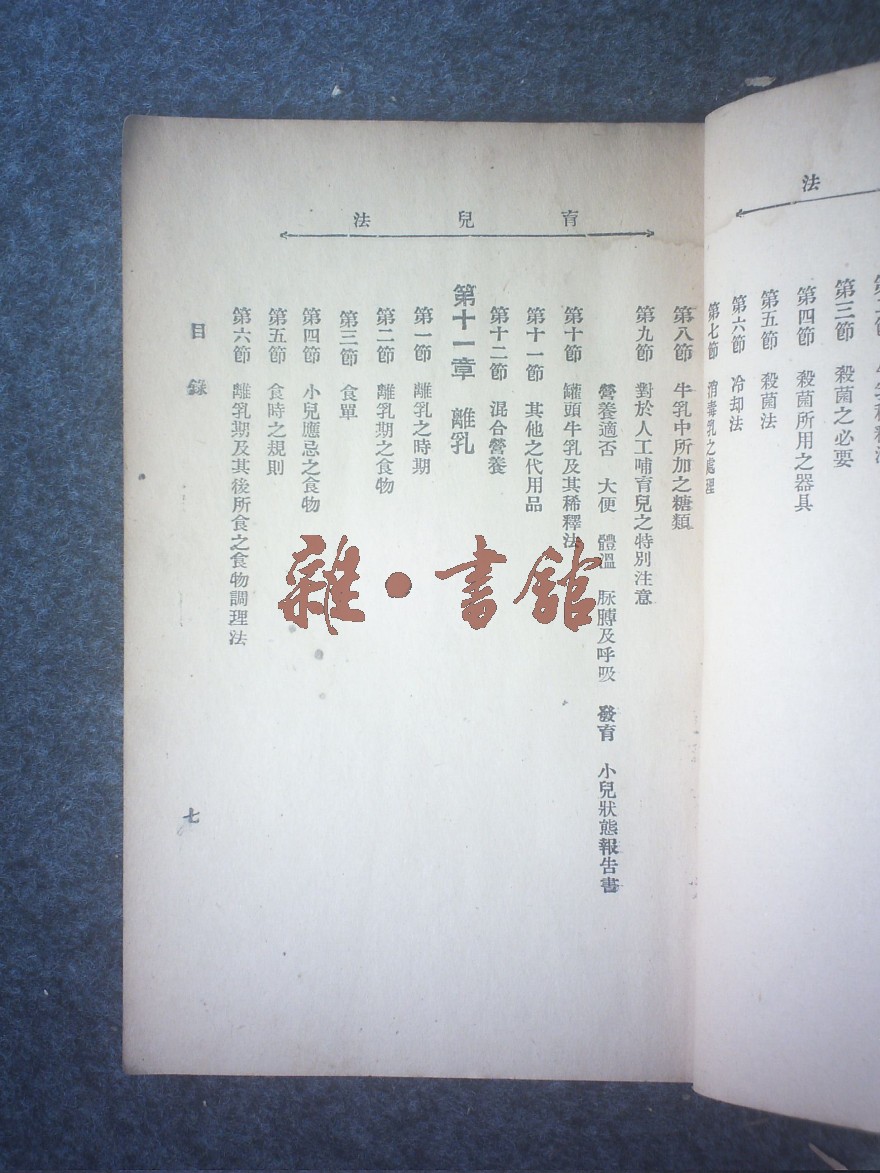 法
第三節　殺菌之必要
第四節　殺菌所用之器具
第五節　殺菌法
第六節　冷却法
第七節　消毒乳之處理
育兒法
第八節　牛乳中所加之糖類
第九節　對於人工哺育兒之特別注意
營養適否　大便　體溫　脉膊及呼吸　發育　小兒狀態報告書
第十節　罐頭牛乳及其稀釋法
第十一節　其他之代用品
第十二節　混合營養
第十一章　離乳
第一節　離乳之時期
第二節　離乳期之食物
第三節　食單
第四節　小兒應忌之食物
第五節　食時之規則
第六節　離乳期及其後所食之食物調理法
目錄
七
雜·書館